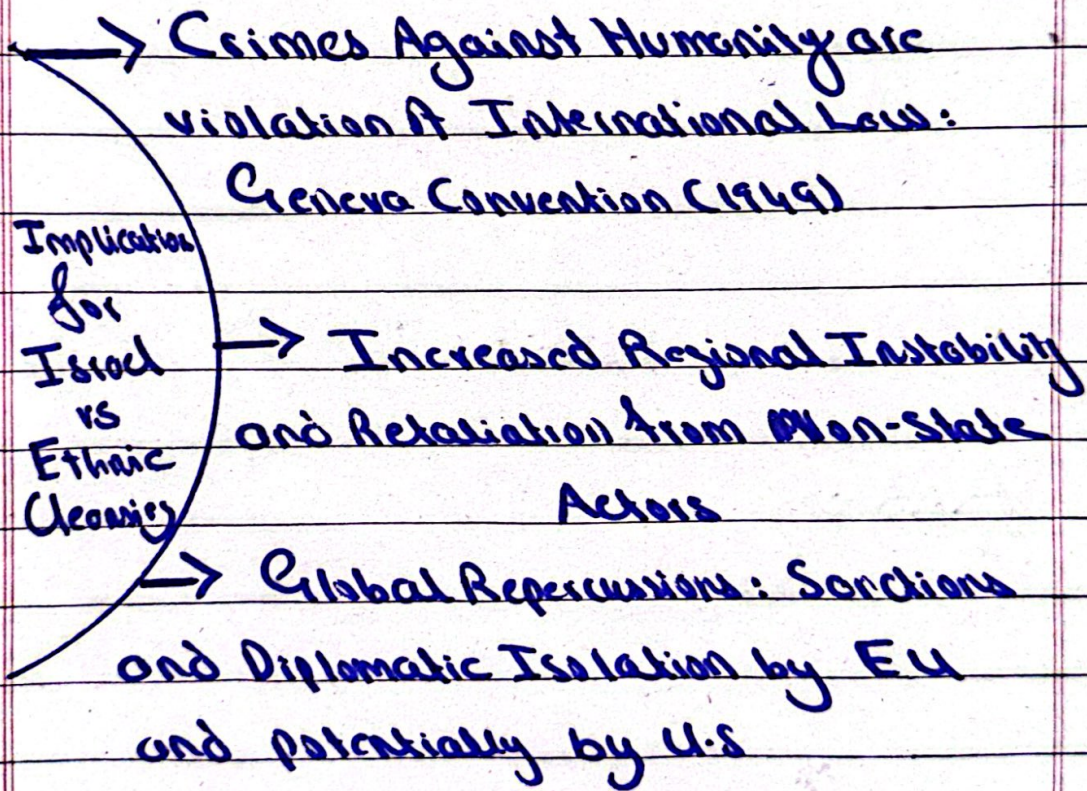 Crimes Against Humanity are
violation of International Law:
Geneva Convention (1949)
Implication
for
Israel
vs
Ethnic
Cleansing
Increased Regional Instability
and Retaliation from Non-State
Actors
Global Repercussions: Sanctions
and Diplomatic Isolation by EU
and potentially by U.S